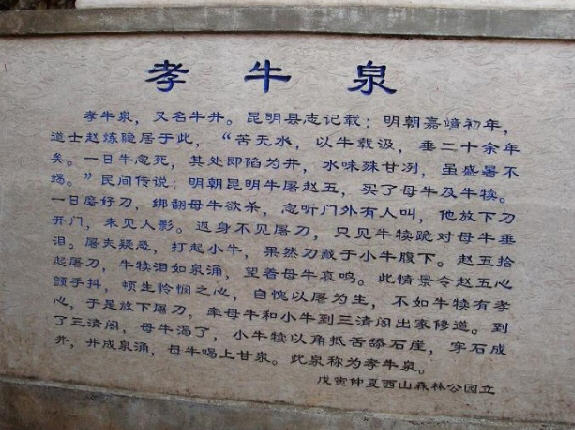 孝牛泉
孝牛泉，又名牛井。昆明县志记载：明朝嘉靖初年，
道士赵炼隐居于此，“苦无水，以牛载汲，垂二十余年
矣。一日牛忽死，其处即陷为井，水味殊甘冽，虽盛暑不
竭。”民间传说：明朝昆明牛屠赵五，买了母牛及牛犊。
一日磨好刀，绑翻母牛欲杀，忽听门外有人叫，他放下刀
开门，未见人影。返身不见屠刀，只见牛犊跪对母牛垂
泪。屠夫疑惑，打起小牛，果然刀藏于小牛腹下。赵五拾
起屠刀，牛犊泪如泉涌，望着母牛哀鸣。此情景令赵五心
颤手抖，顿生怜悯之心，自愧以屠为生，不如牛犊有孝
心，于是放下屠刀，牵母牛和小牛到三清阁出家修道。到
了三清阁，母牛渴了，小牛犊以角抵舌舔石崖，穿石成
井，井成泉涌，母牛喝上甘泉。此泉称为孝牛泉。
戊寅仲夏西山森林公园立